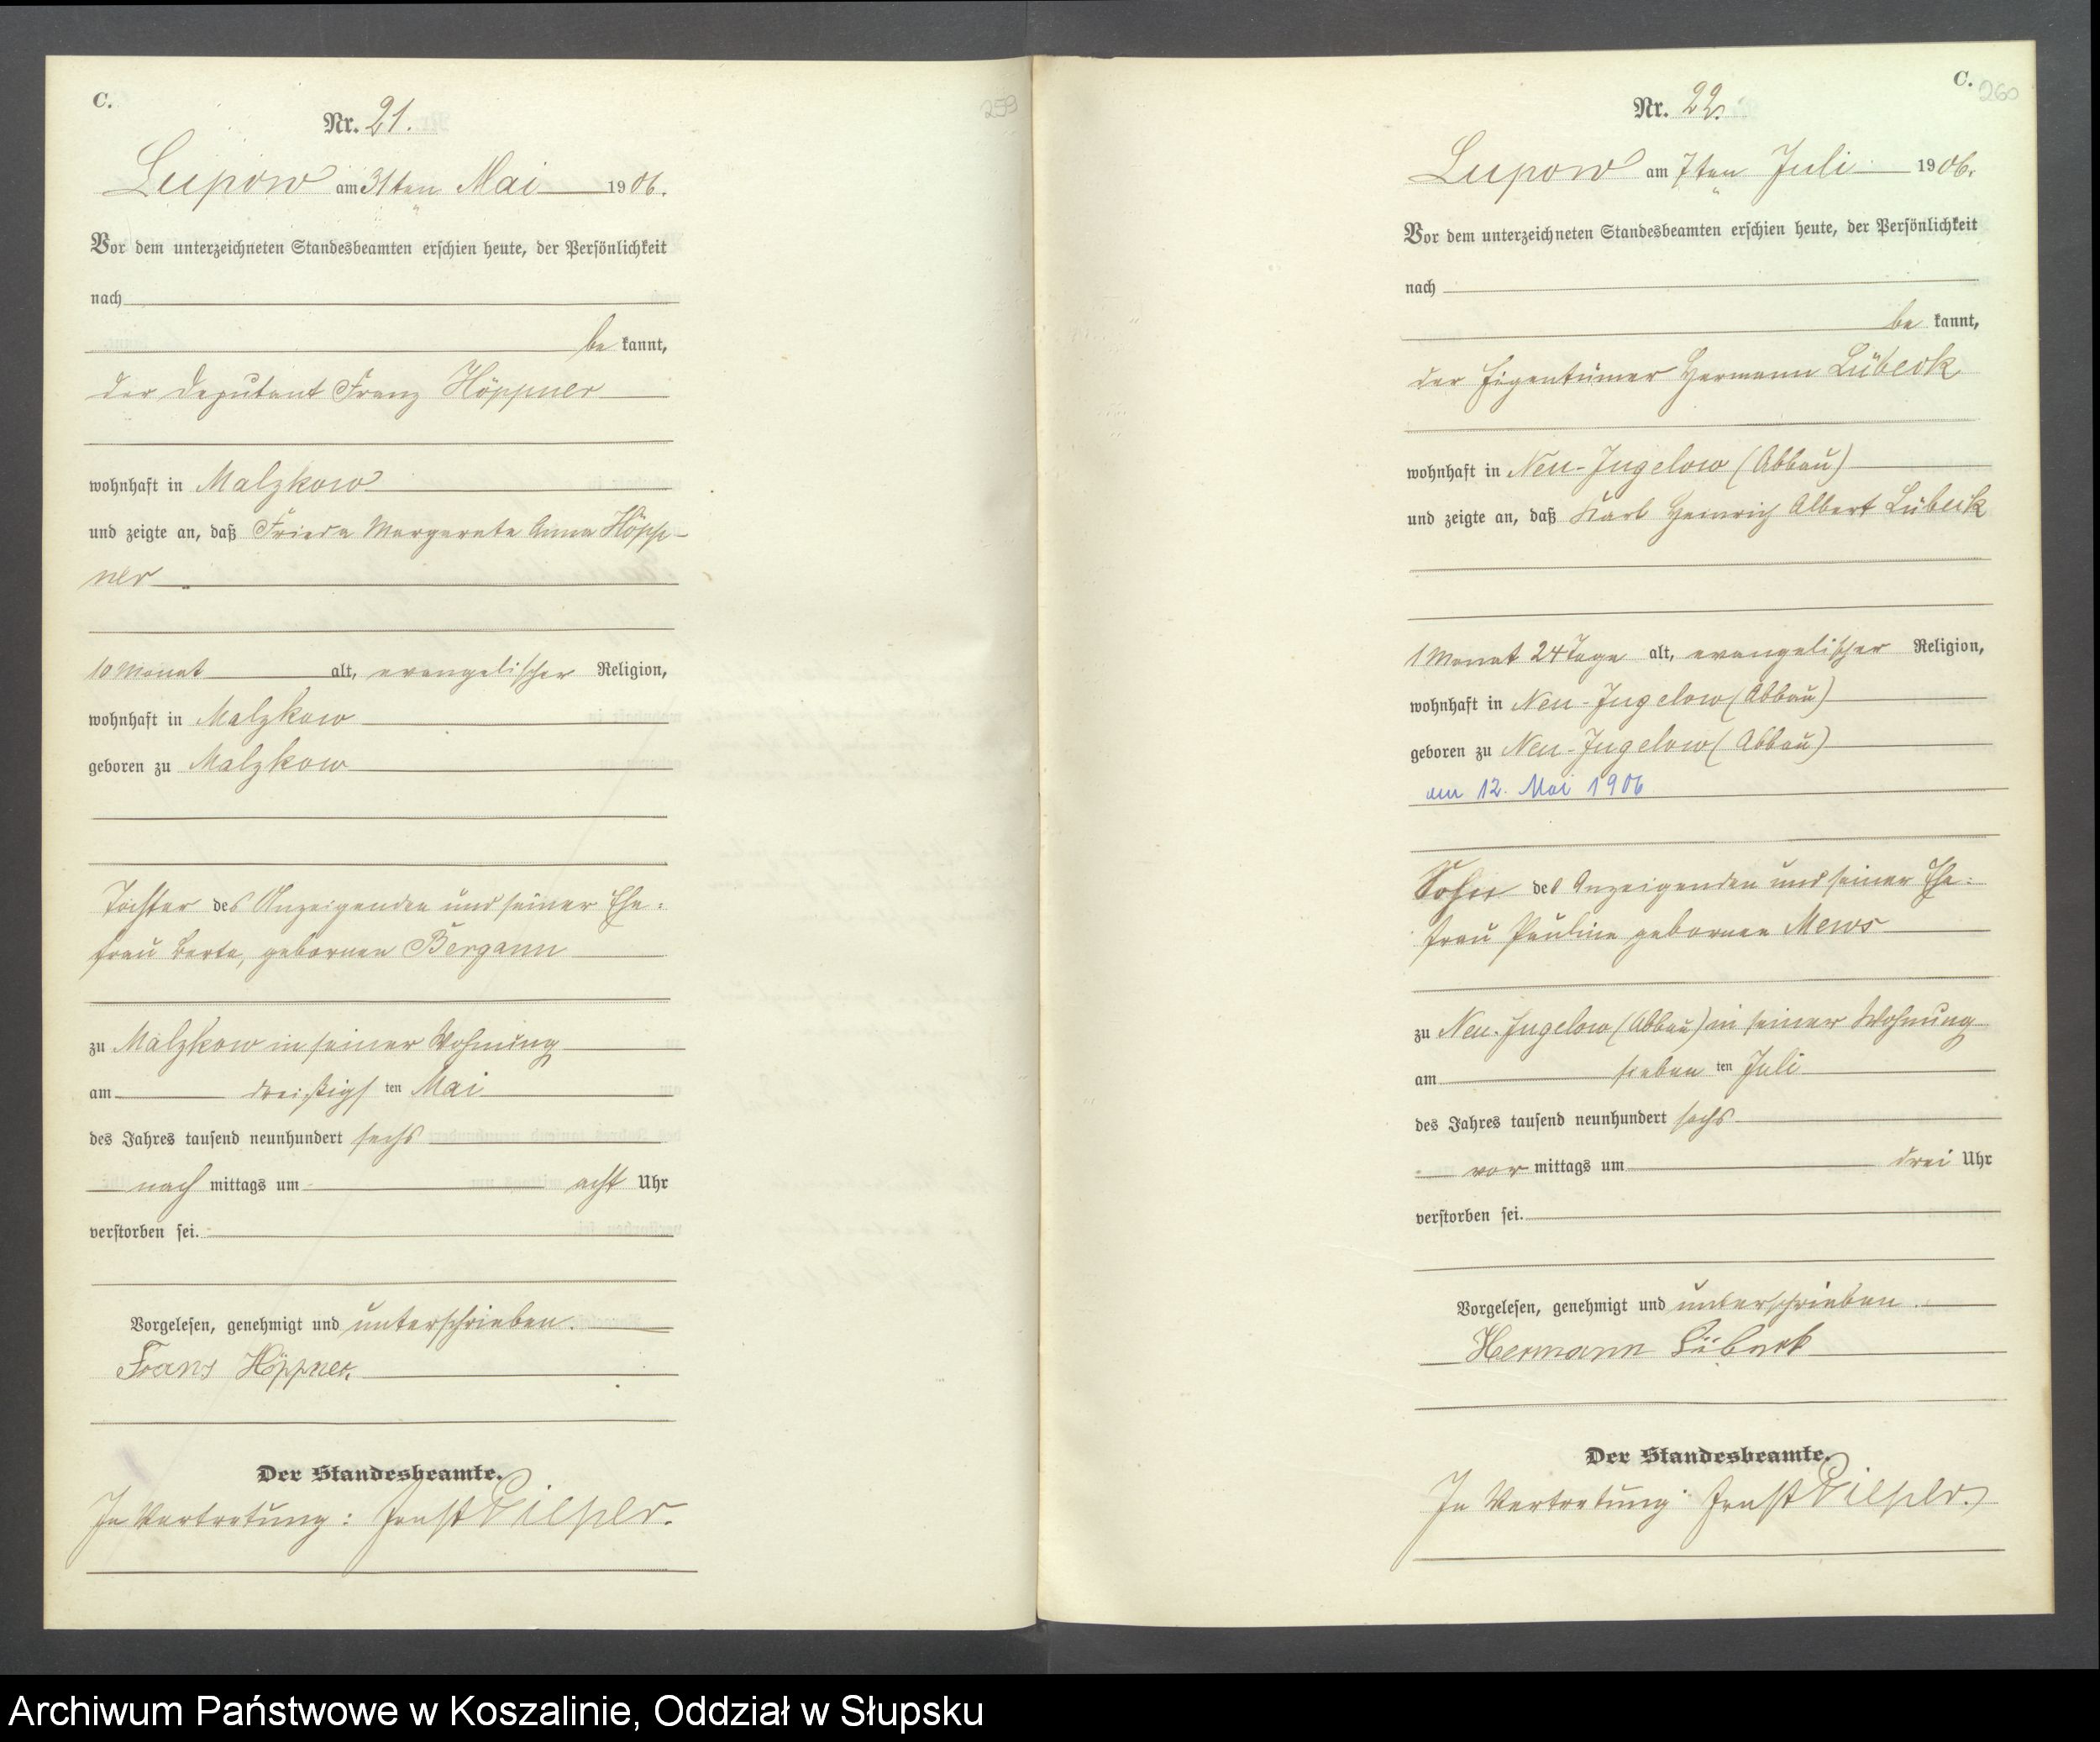 C.
259
Nr. 21.
Lupow am 31ten Mai 1906.
Vor dem unterzeichneten Standesbeamten erschien heute, der Persönlichkeit
nach
be kannt,
der Deputant Franz Höppner
wohnhaft in Malzkow
und zeigte an, daß Frieda Margarete Anna Höpp-
ner
10 Monat alt, evangelischer Religion,
wohnhaft in Malzkow
geboren zu Malzkow
Tochter des Anzeigenden und seiner Ehe-
frau Berta, gebornen Bergann
zu Malzkow in seiner Wohnung
am dreißigs ten Mai
des Jahres tausend neunhundert sechs
nach mittags um acht Uhr
verstorben sei.
Vorgelesen, genehmigt und unterschrieben.
Franz Höppner.
Der Standesbeamte.
In Vertretung: Ernst Pieper.
C.
260
Nr. 22.
Lupow am 7ten Juli 1906.
Vor dem unterzeichneten Standesbeamten erschien heute, der Persönlichkeit
nach
be kannt,
der Eigentümer Hermann Lübeck
wohnhaft in Neu-Jugelow (Abbau)
und zeigte an, daß Karl Heinrich Albert Lübeck
1 Monat 24 Tage alt, evangelischer Religion,
wohnhaft in Neu-Jugelow (Abbau)
geboren zu Neu-Jugelow (Abbau)
am 12. Mai 1906
Sohn des Anzeigenden und seiner Ehe-
frau Pauline gebornen Mews
zu Neu-Jugelow (Abbau) in seiner Wohnung
am sieben ten Juli
des Jahres tausend neunhundert sechs
vor mittags um drei Uhr
verstorben sei.
Vorgelesen, genehmigt und unterschrieben.
Hermann Lübeck
Der Standesbeamte.
In Vertretung: Ernst Pieper.
Archiwum Państwowe w Koszalinie, Oddział w Słupsku